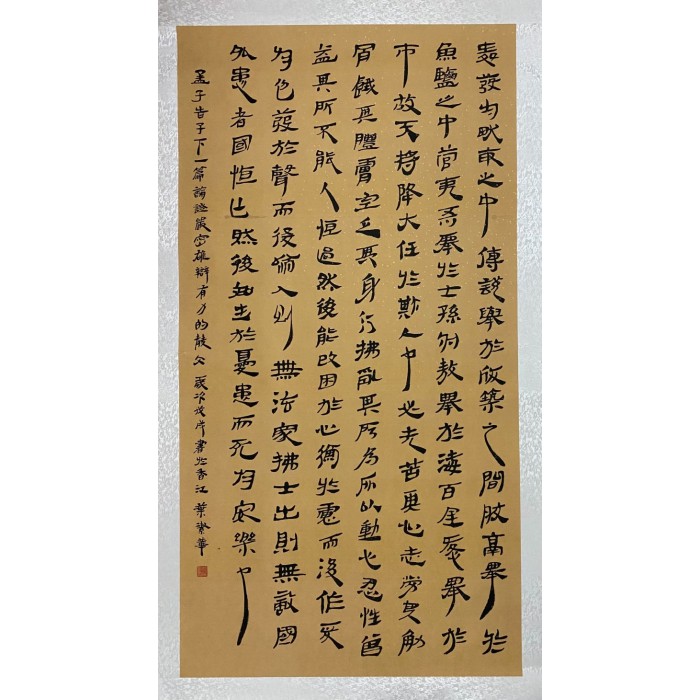 舜發於畎畝之中傅說舉於版築之間膠鬲舉於
魚鹽之中管夷吾舉於士孫叔敖舉於海百里奚舉於
市故天將降大任於斯人也必先苦其心志勞其筋
骨餓其體膚空乏其身行拂亂其所為所以動心忍性曾
益其所不能人恒過然後能改困於心衡於慮而後作
於色發於聲而後喻入則無法家拂士出則無敵國
外患者國恒亡然後知生於憂患而死於安樂也
孟子告子下一篇論證嚴密雄辯有力的散文 歲次戊戌書於香江 葉華